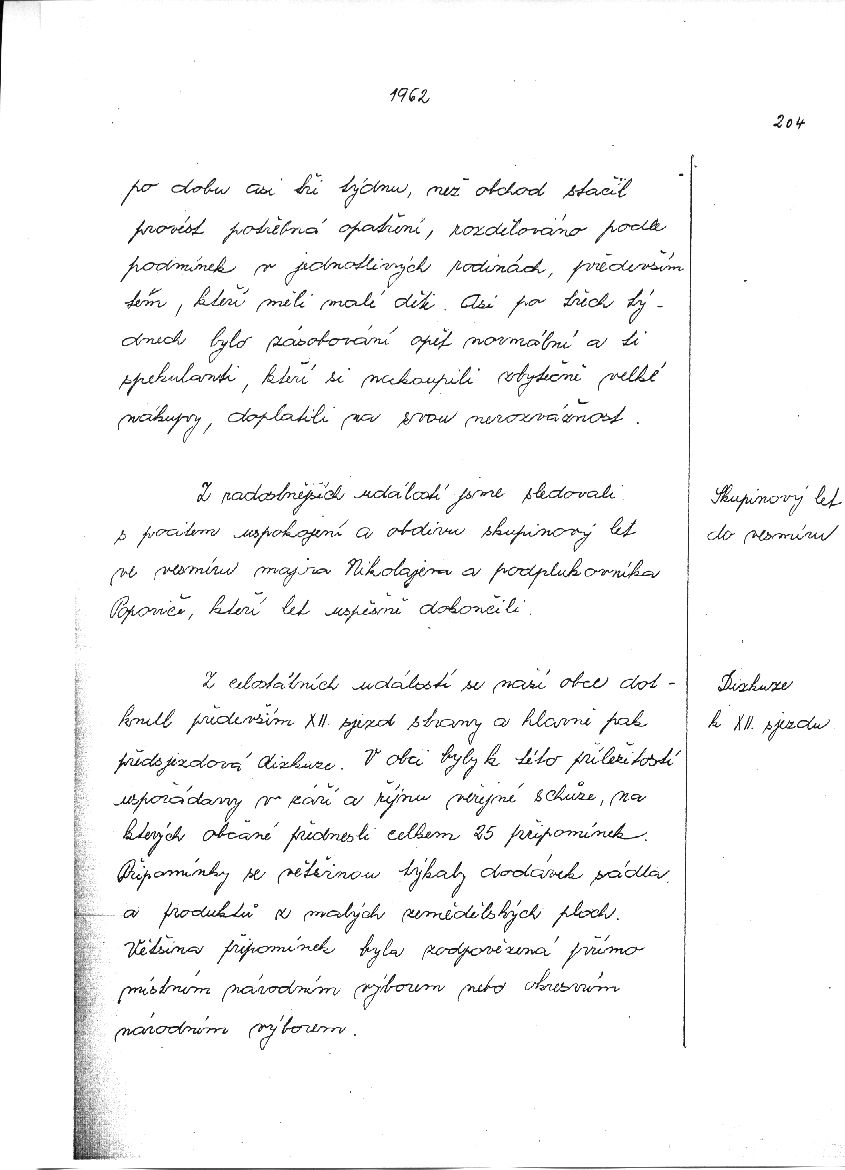 1962
204
po dobu asi tři týdnu, než obchod stačil
provést potřebná opatření, rozdělováno podle
podmínek v jednotlivých rodinách, především
těm, kteří měli malé děti. Asi po třech tý-
dnech bylo zásobování opět normální a ti
spekulanti, kteří si nakoupili zbytečně velké
nákupy, doplatili na svou nerozvážnost.
Z radostnějších událostí jsme sledovali
s pocitem uspokojení a obdivu skupinový let
ve vesmíru majora Nikolajeva a podplukovníka
Popoviče, kteří let úspěšně dokončili.
Skupinový let
do vesmíru
Z celostátních událostí se naší obce dot-
knull především XII. sjezd strany a hlavně pak
předsjezdová diskuze. V obci byly k této příležitosti
uspořádány v září a říjnu veřejné schůze, na
kterých občané přednesli celkem 25 připomínek.
Připomínky se většinou týkaly dodávek sádla
a produktů z malých zemědělských ploch.
Většina připomínek byla zodpovězená přímo
místním národním výborem nebo okresním
národním výborem.
Diskuze
k XII. sjezdu